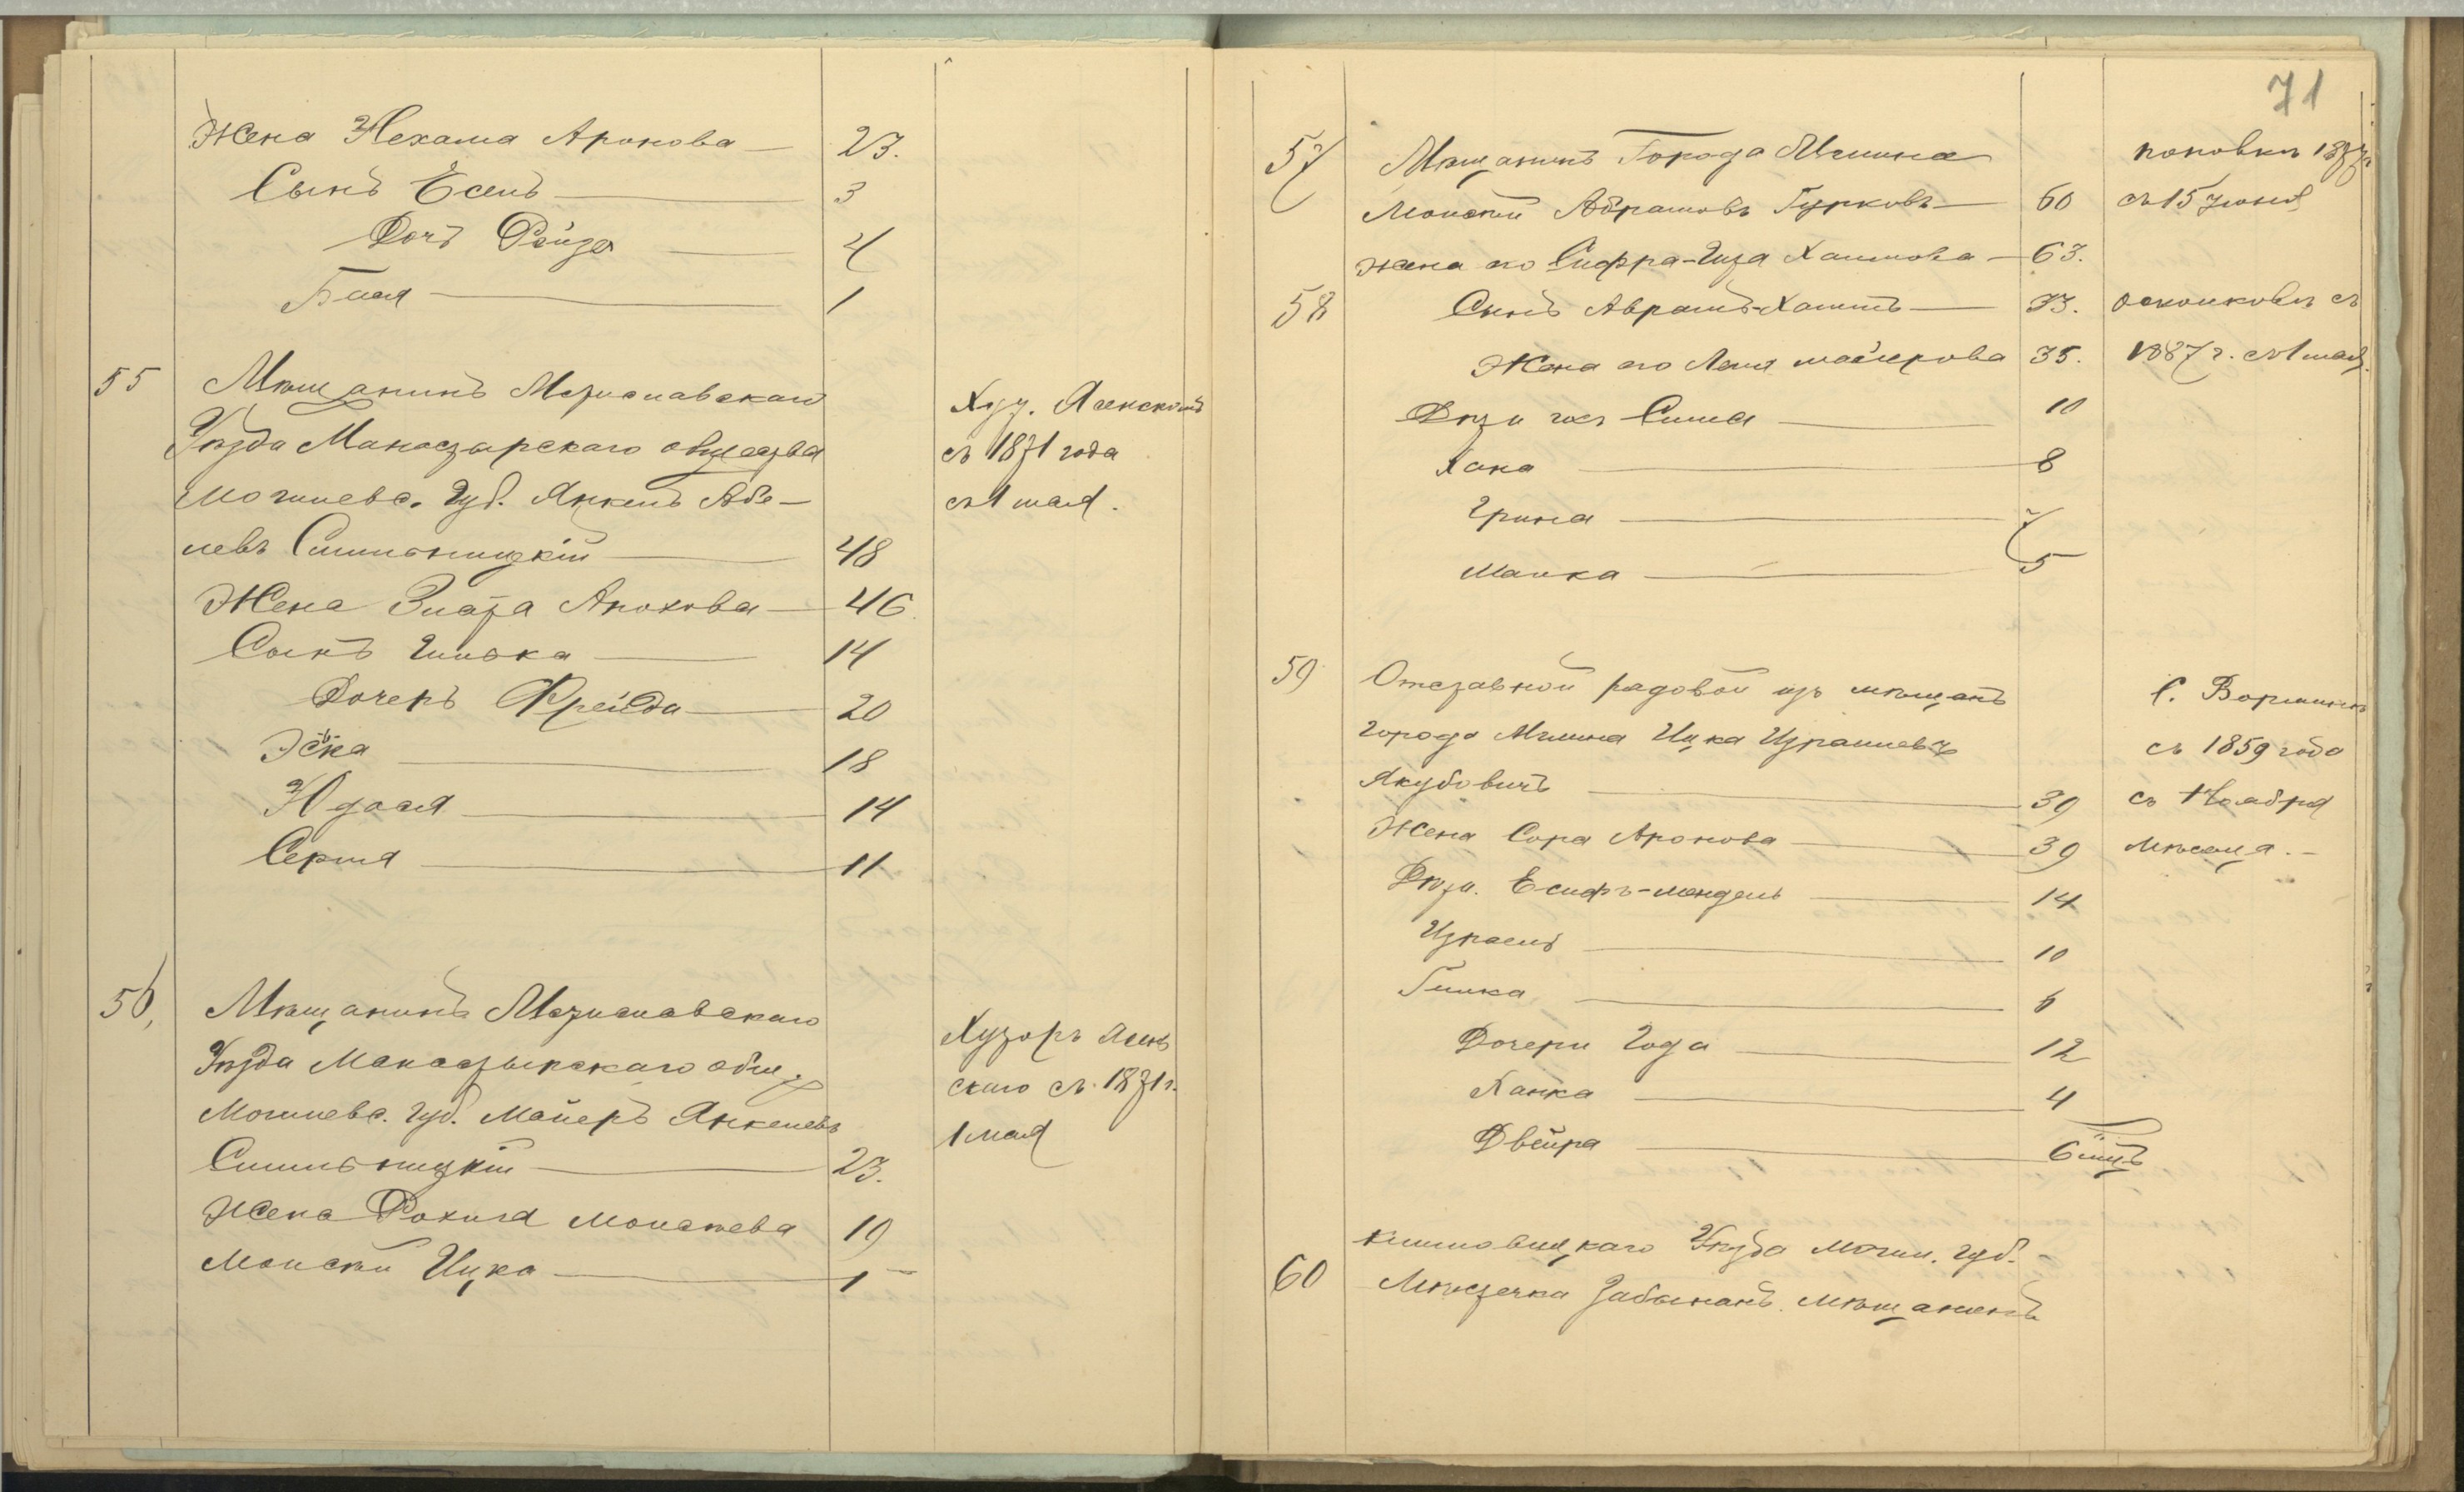 Жена Нехама Аронова — 23.
Сынъ Есель — 3
Дочь Рейза — 4
Бася — 1
55 Мѣщанинъ Мстиславскаго
Уѣзда Манастырскаго общества
Могилевс. Губ. Янкель Абе-
левъ Смильницкій — 48
Жена Злата Аронова — 46
Сынъ Гилька — 14
Дочерь Фрейда — 20
Эська — 18
Юдася — 14
Серпя — 11
Хут. Ясенскомъ
съ 1871 года
съ 1 мая.
56, Мѣщанинъ Мстиславскаго
Уѣзда Манастырскаго общ.
Могилевс. губ. Майеръ Янкелевъ
Смильницкій — 23.
Жена Рохля Мопсеева 19
Мопсей Ицка — 1
Хуторъ Ясен
скаго съ 1871 г.
1 мая
71
57 Мѣщанинъ Города Мглина
Мопсей Абрамовъ Гурковъ — 60
жена его Сифра-Гиза Хаимова — 63.
поповкѣ 1877г.
съ 15 Іюня
58 Сынъ Аврамъ-Хаимъ — 33.
Жена его Леия майерова 35.
Дѣти ихъ Сима — 10
Хана — 8
Грина — 7
Малка — 5
осколковѣ съ
1887 г. съ 1 мая.
59 Отставной рядовой изъ мѣщанъ
города Мглина Ицка Израилевъ
Якубовичъ — 39
Жена Сора Аронова — 39
Дѣти. Есифъ-мендель — 14
Израель — 10
Гилка — 6
Дочери Года — 12
Ханка — 4
Двейра — 6 мцъ
С. Вормино
съ 1859 года
съ Ноября
мѣсяца. -
Климовицкаго Уѣзда Могил. губ.
60 Мѣстечка Забычанъ. мѣщанинъ